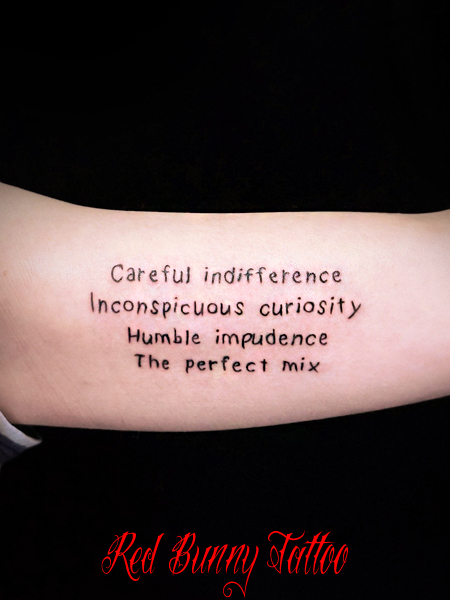 Careful indifference
Inconspicuous curiosity
Humble impudence
The perfect mix
Red Bunny Tattoo